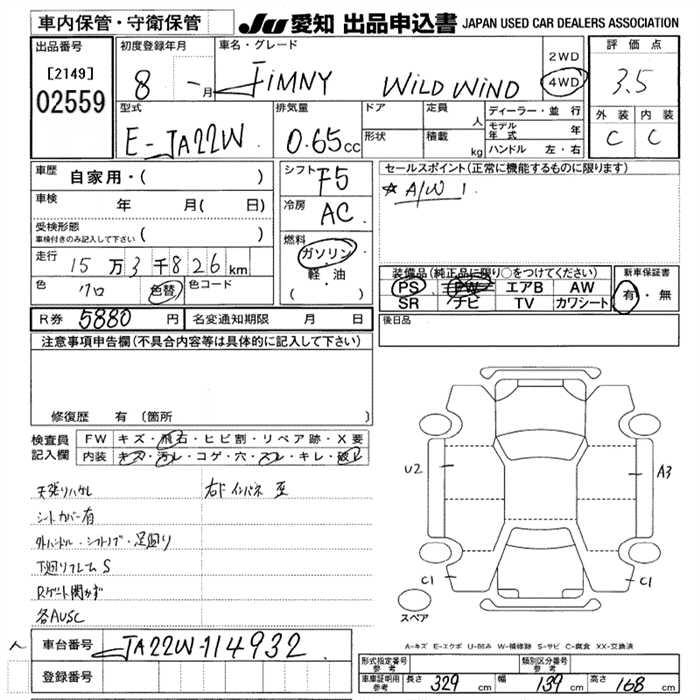 車内保管・守衛保管
JU 愛知 出品申込書 JAPAN USED CAR DEALERS ASSOCIATION
出品番号
[2149]
02559
初度登録年月
8 - 月
車名・グレード
JIMNY WILD WIND
2WD
4WD
評価点
3.5
外装 内装
C C
型式
E-JA22W
排気量
0.65cc
ドア
形状
定員 人
積載 kg
ディーラー・並行
モデル年式 年
ハンドル 左・右
車歴 自家用・( )
車検 年 月( 日)
受検形態
車検付きのみ記入して下さい ( )
走行 15万3千826km
色 クロ 色替 色コード
シフト F5
冷房 AC
燃料
ガソリン
軽・油
( )
セールスポイント(正常に機能するものに限ります)
☆A/W 1
装備品(純正品に限り○をつけてください)
PS PW エアB AW
SR ナビ TV カワシート
新車保証書
有・無
R券 5880円 名変通知期限 月 日
後日品
注意事項申告欄(不具合内容等は具体的に記入して下さい)
修復歴 有(箇所 )
検査員記入欄
FW キズ・飛石・ヒビ割・リペア跡・X要
内装 キズ・汚レ・コゲ・穴・スレ・キレ・破レ
天張りハガレ
右F インパネ 歪
シートカバー有
外ハンドル・シフトノブ・足廻り
下廻りフレームS
Rゲート開かず
各AUSC
U2
A3
C1
C1
スペア
A-キズ E-エクボ U-凹み W-補修跡 S-サビ C-腐食 XX-交換済
車台番号 JA22W-114932
登録番号
形式指定番号 参考
類別区分番号 参考
車庫証明用 参考 長さ 329cm 幅 139cm 高さ 168cm